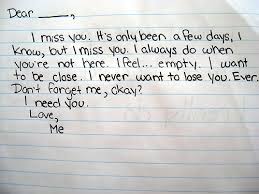 Dear ____,
I miss you. It's only been a few days, I
know, but I miss you. I always do when
you're not here. I feel... empty. I want
to be close. I never want to lose you. Ever.
Don't forget me, okay?
I need you.
Love,
Me